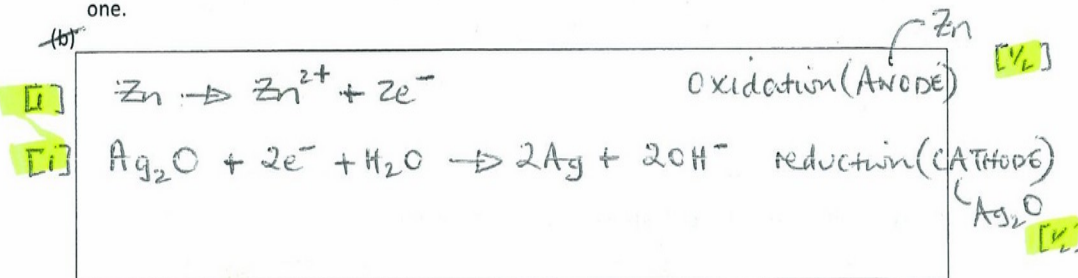 one.
(b)
Zn
[½]
[1] Zn → Zn²⁺ + 2e⁻ Oxidation (ANODE)
[1] Ag₂O + 2e⁻ + H₂O → 2Ag + 2OH⁻ reduction (CATHODE)
Ag₂O
[½]